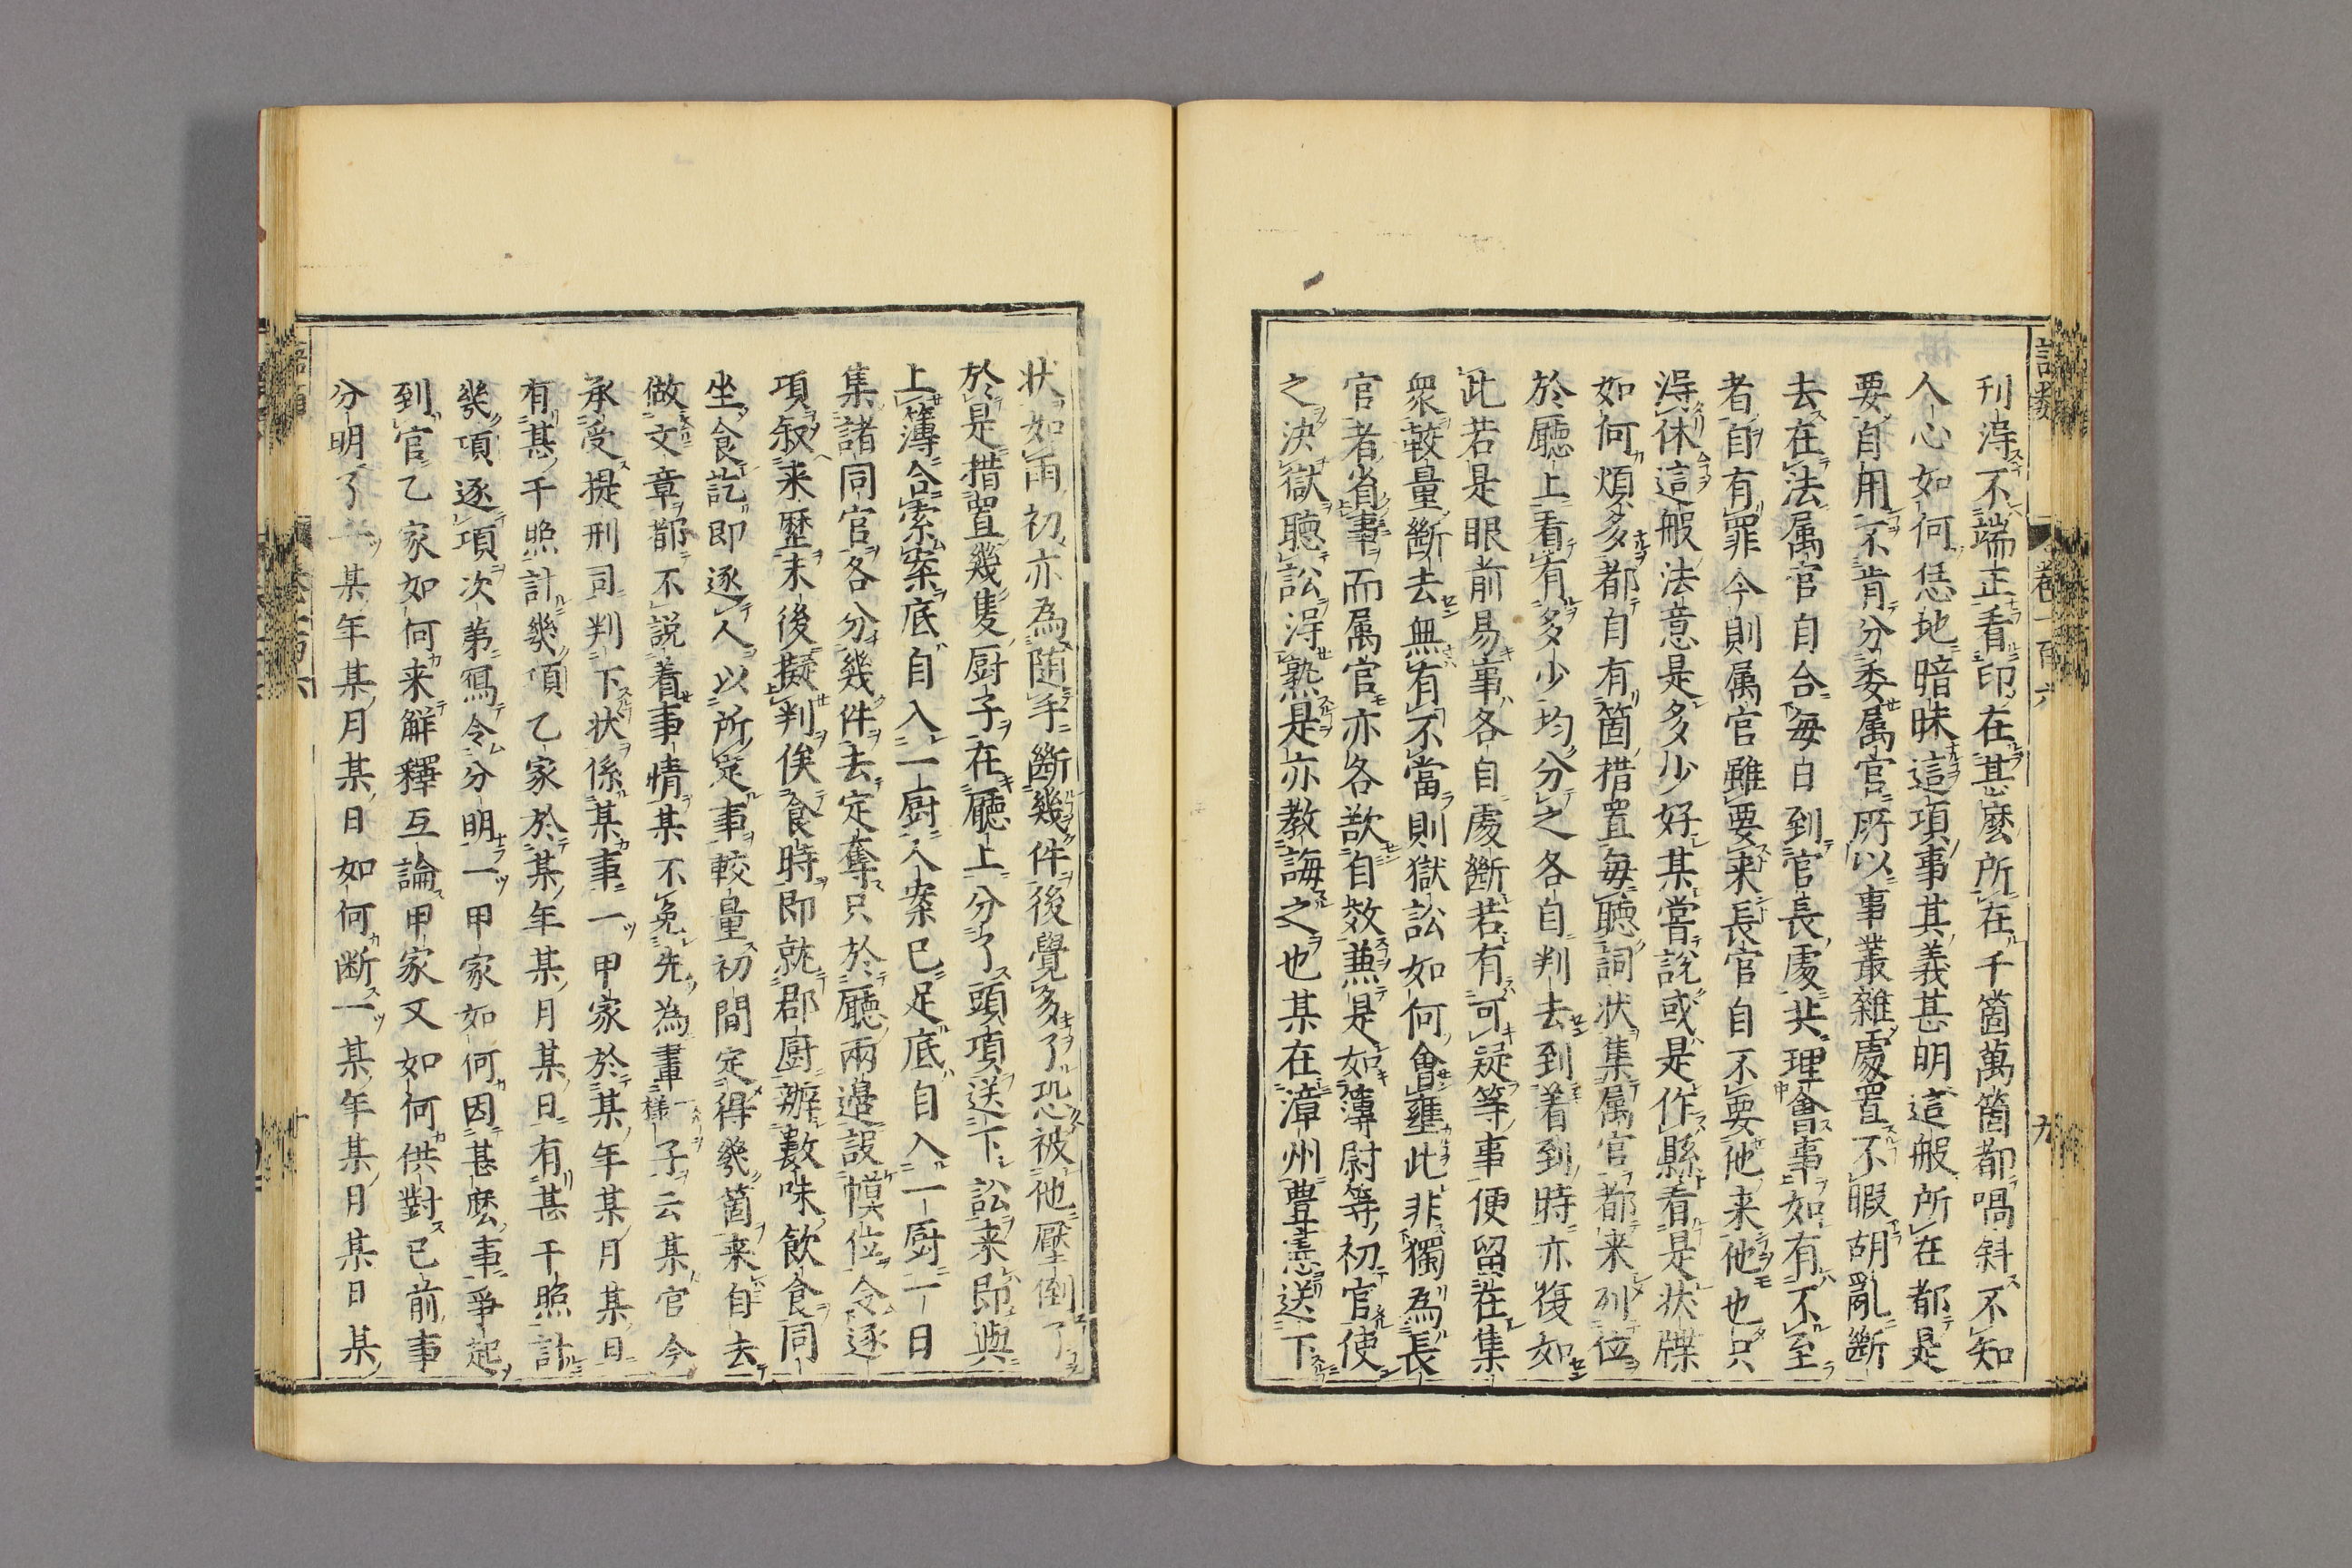 語類 卷一百六 九
刊得不端正看印在甚麼所在千箇萬箇都喎斜不知
人心如何恁地暗昧這項事其義甚明這般所在都是
要自用不肯分委属官所以事叢雜處置不暇胡亂斷
去在法属官自合每日到官長處共理會事如有不至
者自有罪今則属官雖要来長官自不要他来他也只
得休這般法意是多少好某嘗說或是作縣看是状牒
如何煩多都自有箇措置每聽詞状集属官都来列位
於廳上看有多少均分之各自判去到着到時亦復如
此若是眼前易事各自處斷若有可疑等事便留在集
衆較量斷去無有不當則獄訟如何會壅此非獨為長
官者省事而属官亦各欲自效兼是如簿尉等初官使
之決獄聽訟得熟是亦教誨之也某在漳州豊憲送下
状如雨初亦為随手斷幾件後覺多了恐被他壓倒了
於是措置幾隻厨子在廳上分了頭項送下訟来即與
上簿合索案底自入一厨人案已足底自入一厨一日
集諸同官各分幾件去定奪只於廳兩邉設幙位令逐
項叙来歷末後擬判俟食時即就郡厨辦數味飲食同
坐食訖即逐人以所定事較量初間定得幾箇来自去
做文章都不說着事情某不免先為畫一樣子云某官今
承受提刑司判下状係某事一甲家於某年某月某日
有甚干照計幾項乙家於某年某月某日有甚干照計
幾項逐項次第寫令分明一甲家如何因甚麽事爭起
到官乙家如何来解釋互論甲家又如何供對已前事
分明了一某年某月某日如何断一某年某月某日某